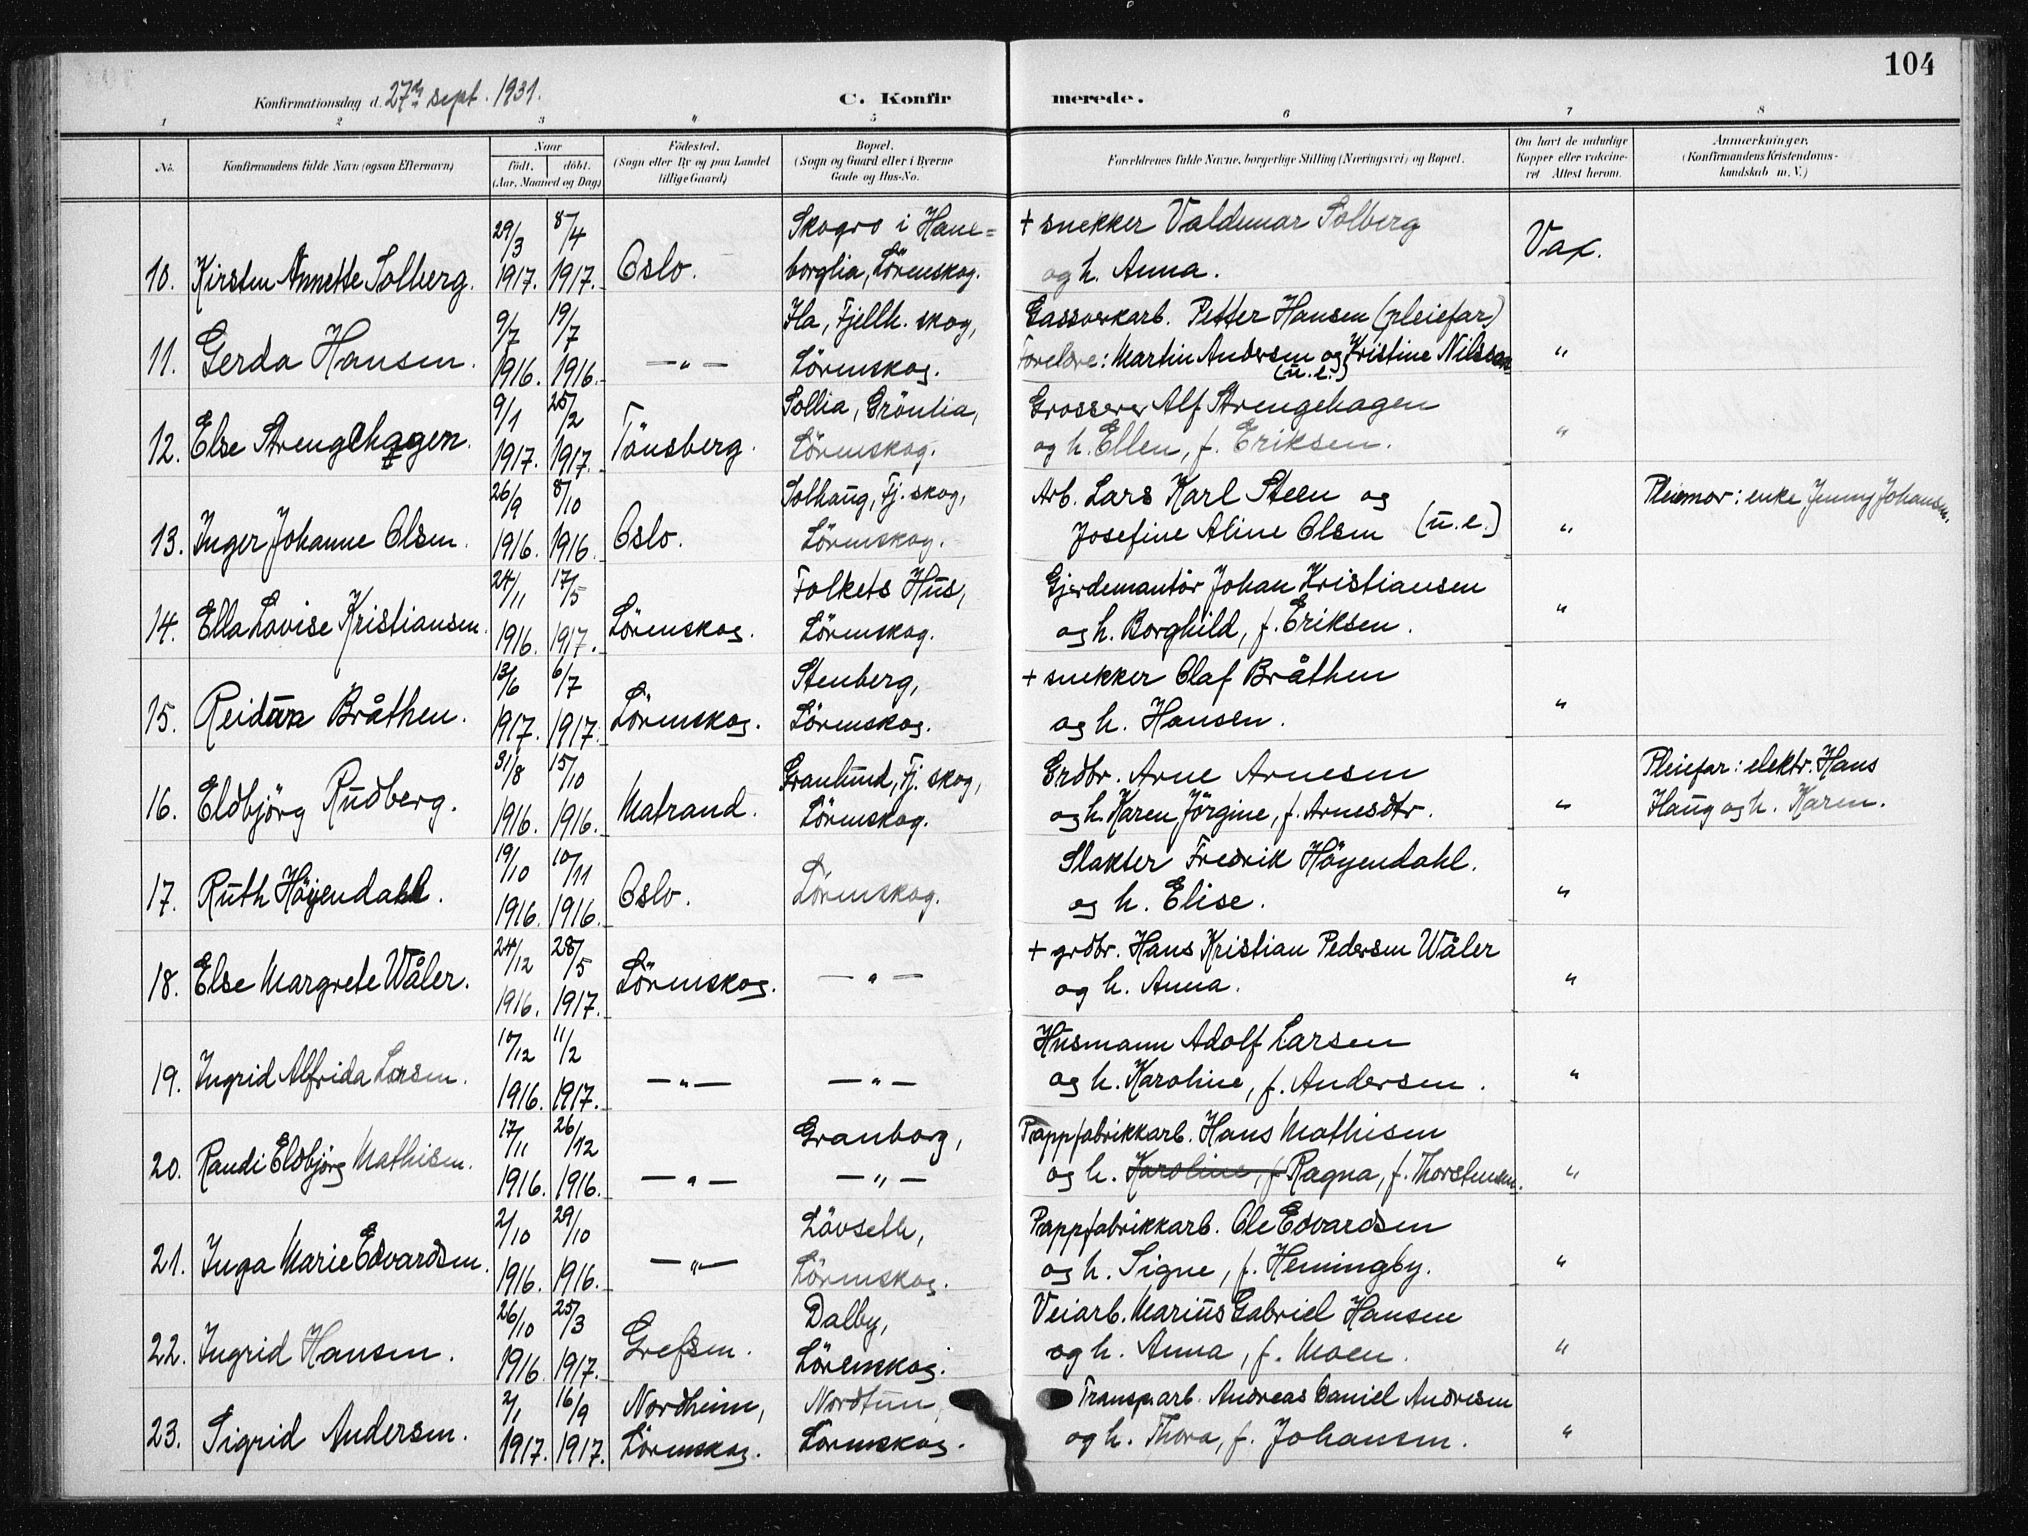 104
Konfirmationsdag d. 27de sept. 1931.
C. Konfirmerede.
1 2 3 " 5 6 7 8
No. Konfirmandens fulde Navn (ogsaa Efternavn) Naar födt. döbt. (Aar, Maaned og Dag) Födested. (Sogn eller By og paa Landet tillige Gaard) Bopæl. (Sogn og Gaard eller i Byerne Gade og Hus-No. Forældrenes fulde Navne, borgerlige Stilling (Næringsvei) og Bopæl. Om havt de naturlige Kopper eller vakcineret Attest herom. Anmærkninger. (Konfirmandens Kristendomskundskab m. V.)
10. Kirsten Annette Solberg. 29/3 1917. 8/4 1917. Oslo. Skogro i Haneborglia, Lörenskog. + snekker Valdemar Solberg og h. Anna. Vax.
11. Gerda Hansen. 9/7 1916. 19/7 1916. —"— Ila, Fjellh. skog, Lörenskog. Gassverkarb. Petter Hansen (pleiefar) Foreldre: Martin Andersen og Kristine Nilssen (u.e.) "
12. Else Strengehagen. 9/1 1917. 25/2 1917. Tönsberg. Sollia, Grönlia, Lörenskog. Grosserer Alf Strengehagen og h. Ellen, f. Eriksen. "
13. Inger Johanne Olsen. 26/9 1916. 8/10 1916. Oslo. Solhaug, Fj. skog, Lörenskog. Arb. Lars Karl Steen og Josefine Aline Olsen (u.e.) " Pleiemor: enke Jenny Johansen.
14. Ella Lovise Kristiansen. 24/11 1916. 17/5 1917. Lörenskog. Folkets Hus, Lörenskog. Gjerdemontör Johan Kristiansen og h. Borghild, f. Eriksen. "
15. Reidun Bråthen. 13/6 1917. 6/7 1917. Lörenskog. Stenberg, Lörenskog. + snekker Olaf Bråthen og h. Hansen. "
16. Eldbjörg Rudberg. 31/8 1916. 15/10 1916. Matrand. Granlund, Fj. skog, Lörenskog. Grdbr. Arne Arnesen og h. Karen Jörgine, f. Arnesdtr. " Pleiefar: elektr. Hans Haug og h. Karen.
17. Ruth Höyendahl. 19/10 1916. 10/11 1916. Oslo. Lörenskog. Slakter Fredrik Höyendahl. og h. Elise. "
18. Else Margrete Wåler. 24/12 1916. 28/5 1917. Lörenskog. —"— + grdbr. Hans Kristian Pedersen Wåler og h. Anna. "
19. Ingrid Alfrida Larsen. 10/12 1916. 11/2 1917. —"— —"— Husmann Adolf Larsen og h. Karoline, f. Andersen. "
20. Randi Eldbjörg Mathisen. 17/11 1916. 26/12 1916. —"— Granborg, —"— Pappfabrikkarb. Hans Mathisen og h. Karoline, f Ragna, f. Thorstensen. "
21. Inga Marie Edvardsen. 2/10 1916. 29/10 1916. —"— Lövseth, Lörenskog. Pappfabrikkarb. Ole Edvardsen og h. Signe, f. Hemingby. "
22. Ingrid Hansen. 26/10 1916. 25/3 1917. Grefsen. Dalby, Lörenskog. Veiarb. Marius Gabriel Hansen og h. Anna, f. Moen. "
23. Sigrid Andersen. 2/1 1917. 16/9 1917. Nordheim, Lörenskog. Nordtun, Lörenskog. Transp.arb. Andreas Daniel Andresen og h. Thora, f. Johansen. "